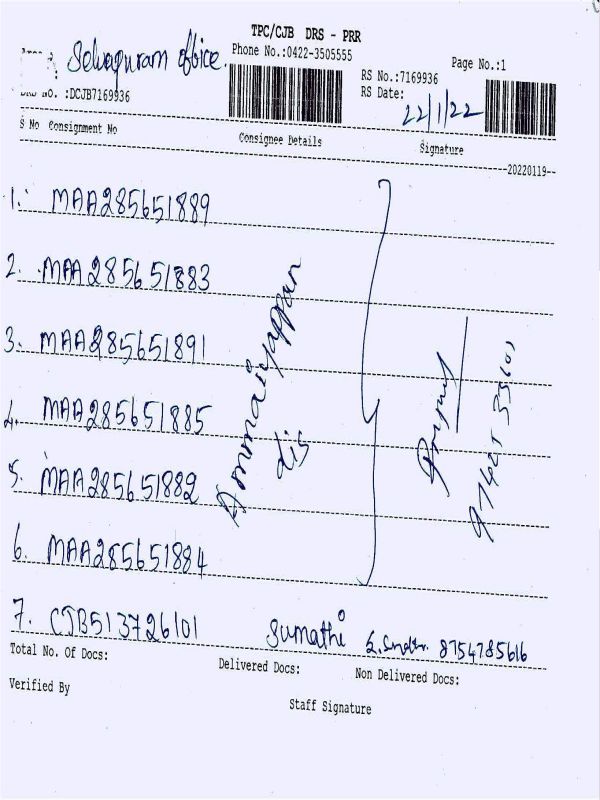 TPC/CJB DRS - PRR
Phone No.:0422-3505555
Page No.:1
Selvapuram office.
RS No.:7169936
RS Date:
22/1/22
NO. :DCJB7169936
S No Consignment No Consignee Details Signature
20220119--
1. MAA285651889
2. MAA285651883
3. MAA285651891
4. MAA285651885
5. MAA285651882
6. MAA285651884
Ammaiyappan
dis
7. CJB513726101 Sumathi 8754785616
Total No. Of Docs: Delivered Docs: Non Delivered Docs:
Verified By
Staff Signature